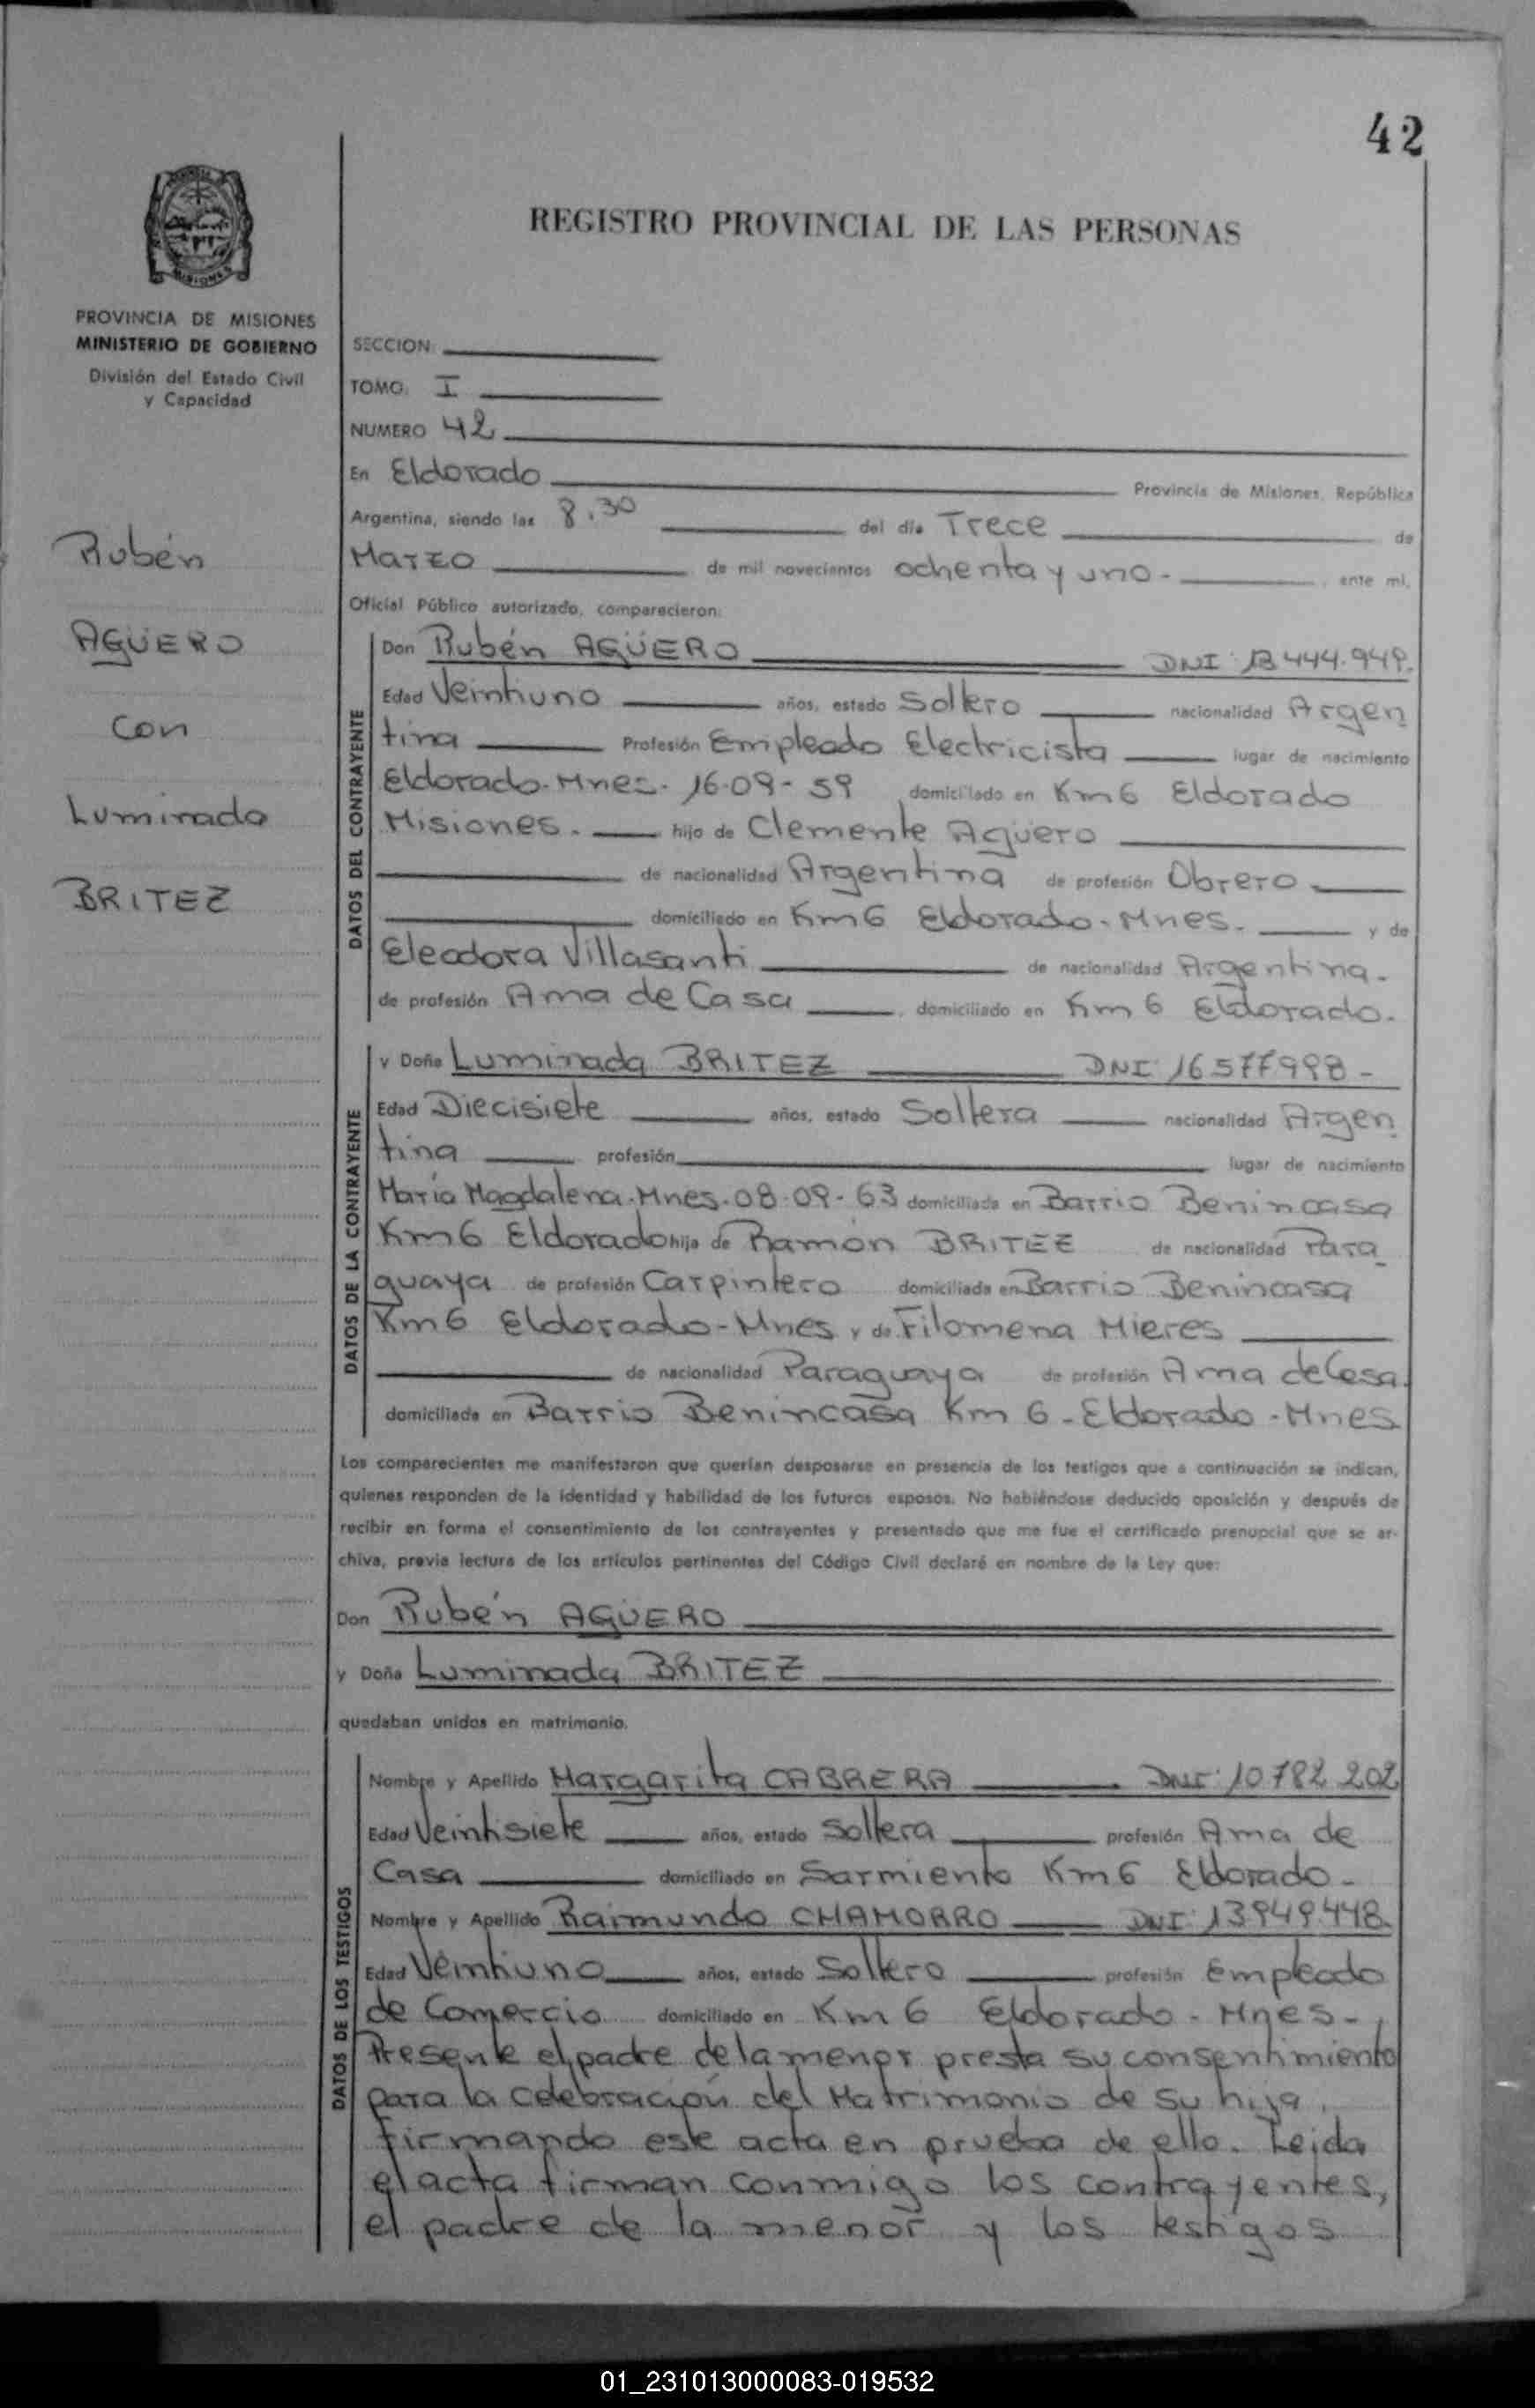 42
REGISTRO PROVINCIAL DE LAS PERSONAS
MISIONES
PROVINCIA DE MISIONES
MINISTERIO DE GOBIERNO
División del Estado Civil
y Capacidad
Rubén
AGÜERO
con
Luminada
BRITEZ
SECCION
TOMO I
NUMERO 42
En Eldorado Provincia de Misiones, República
Argentina, siendo las 8.30 del día Trece de
Marzo de mil novecientos ochenta y uno.- ante mí,
Oficial Público autorizado, comparecieron:
DATOS DEL CONTRAYENTE
Don Rubén AGÜERO DNI 13444.949.
Edad Veintiuno años, estado Soltero nacionalidad Argen
tina Profesión Empleado Electricista lugar de nacimiento
Eldorado-Mnes- 16-09-59 domiciliado en Km6 Eldorado
Misiones. hijo de Clemente Agüero
de nacionalidad Argentina de profesión Obrero
domiciliado en Km6 Eldorado-Mnes. y de
Eleodora Villasanti de nacionalidad Argentina.
de profesión Ama de Casa domiciliado en Km 6 Eldorado.
DATOS DE LA CONTRAYENTE
y Doña Luminada BRITEZ DNI 16577998-
Edad Diecisiete años, estado Soltera nacionalidad Argen
tina profesión lugar de nacimiento
María Magdalena.Mnes.08-09-63 domiciliada en Barrio Benincasa
Km6 Eldorado hija de Ramón BRITEZ de nacionalidad Para
guaya de profesión Carpintero domiciliada en Barrio Benincasa
Km6 Eldorado-Mnes y de Filomena Mieres
de nacionalidad Paraguaya de profesión Ama de Casa.
domiciliada en Barrio Benincasa Km 6-Eldorado-Mnes
Los comparecientes me manifestaron que querían desposarse en presencia de los testigos que a continuación se indican,
quienes responden de la identidad y habilidad de los futuros esposos. No habiéndose deducido oposición y después de
recibir en forma el consentimiento de los contrayentes y presentado que me fue el certificado prenupcial que se ar-
chiva, previa lectura de los artículos pertinentes del Código Civil declaré en nombre de la Ley que:
Don Rubén AGÜERO
y Doña Luminada BRITEZ
quedaban unidos en matrimonio.
DATOS DE LOS TESTIGOS
Nombre y Apellido Margarita CABRERA DNI 10782 202
Edad Veintisiete años, estado Soltera profesión Ama de
Casa domiciliado en Sarmiento Km6 Eldorado-
Nombre y Apellido Raimundo CHAMORRO DNI 13949448
Edad Veintiuno años, estado Soltero profesión Empleado
de Comercio domiciliado en Km 6 Eldorado-Mnes-
Presente el padre de la menor presta su consentimiento
para la celebración del Matrimonio de su hija,
firmando este acta en prueba de ello. Leida
el acta firman conmigo los contrayentes,
el padre de la menor y los testigos
01_231013000083-019532